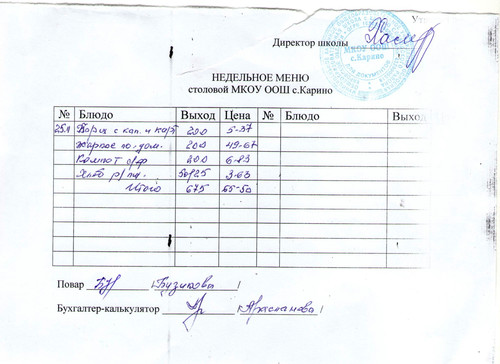 Ут
Директор школы
МКОУ ООШ
с.Карино
НЕДЕЛЬНОЕ МЕНЮ
столовой МКОУ ООШ с.Карино
№ Блюдо Выход Цена № Блюдо Выход
Борщ с кап. и карт 200 5-37
Жаркое по дом. 200 49-67
Компот с/ф 200 6-83
Хлеб р/пш. 50/25 3-63
Итого 675 65-50
Повар Бузикова
Бухгалтер-калькулятор